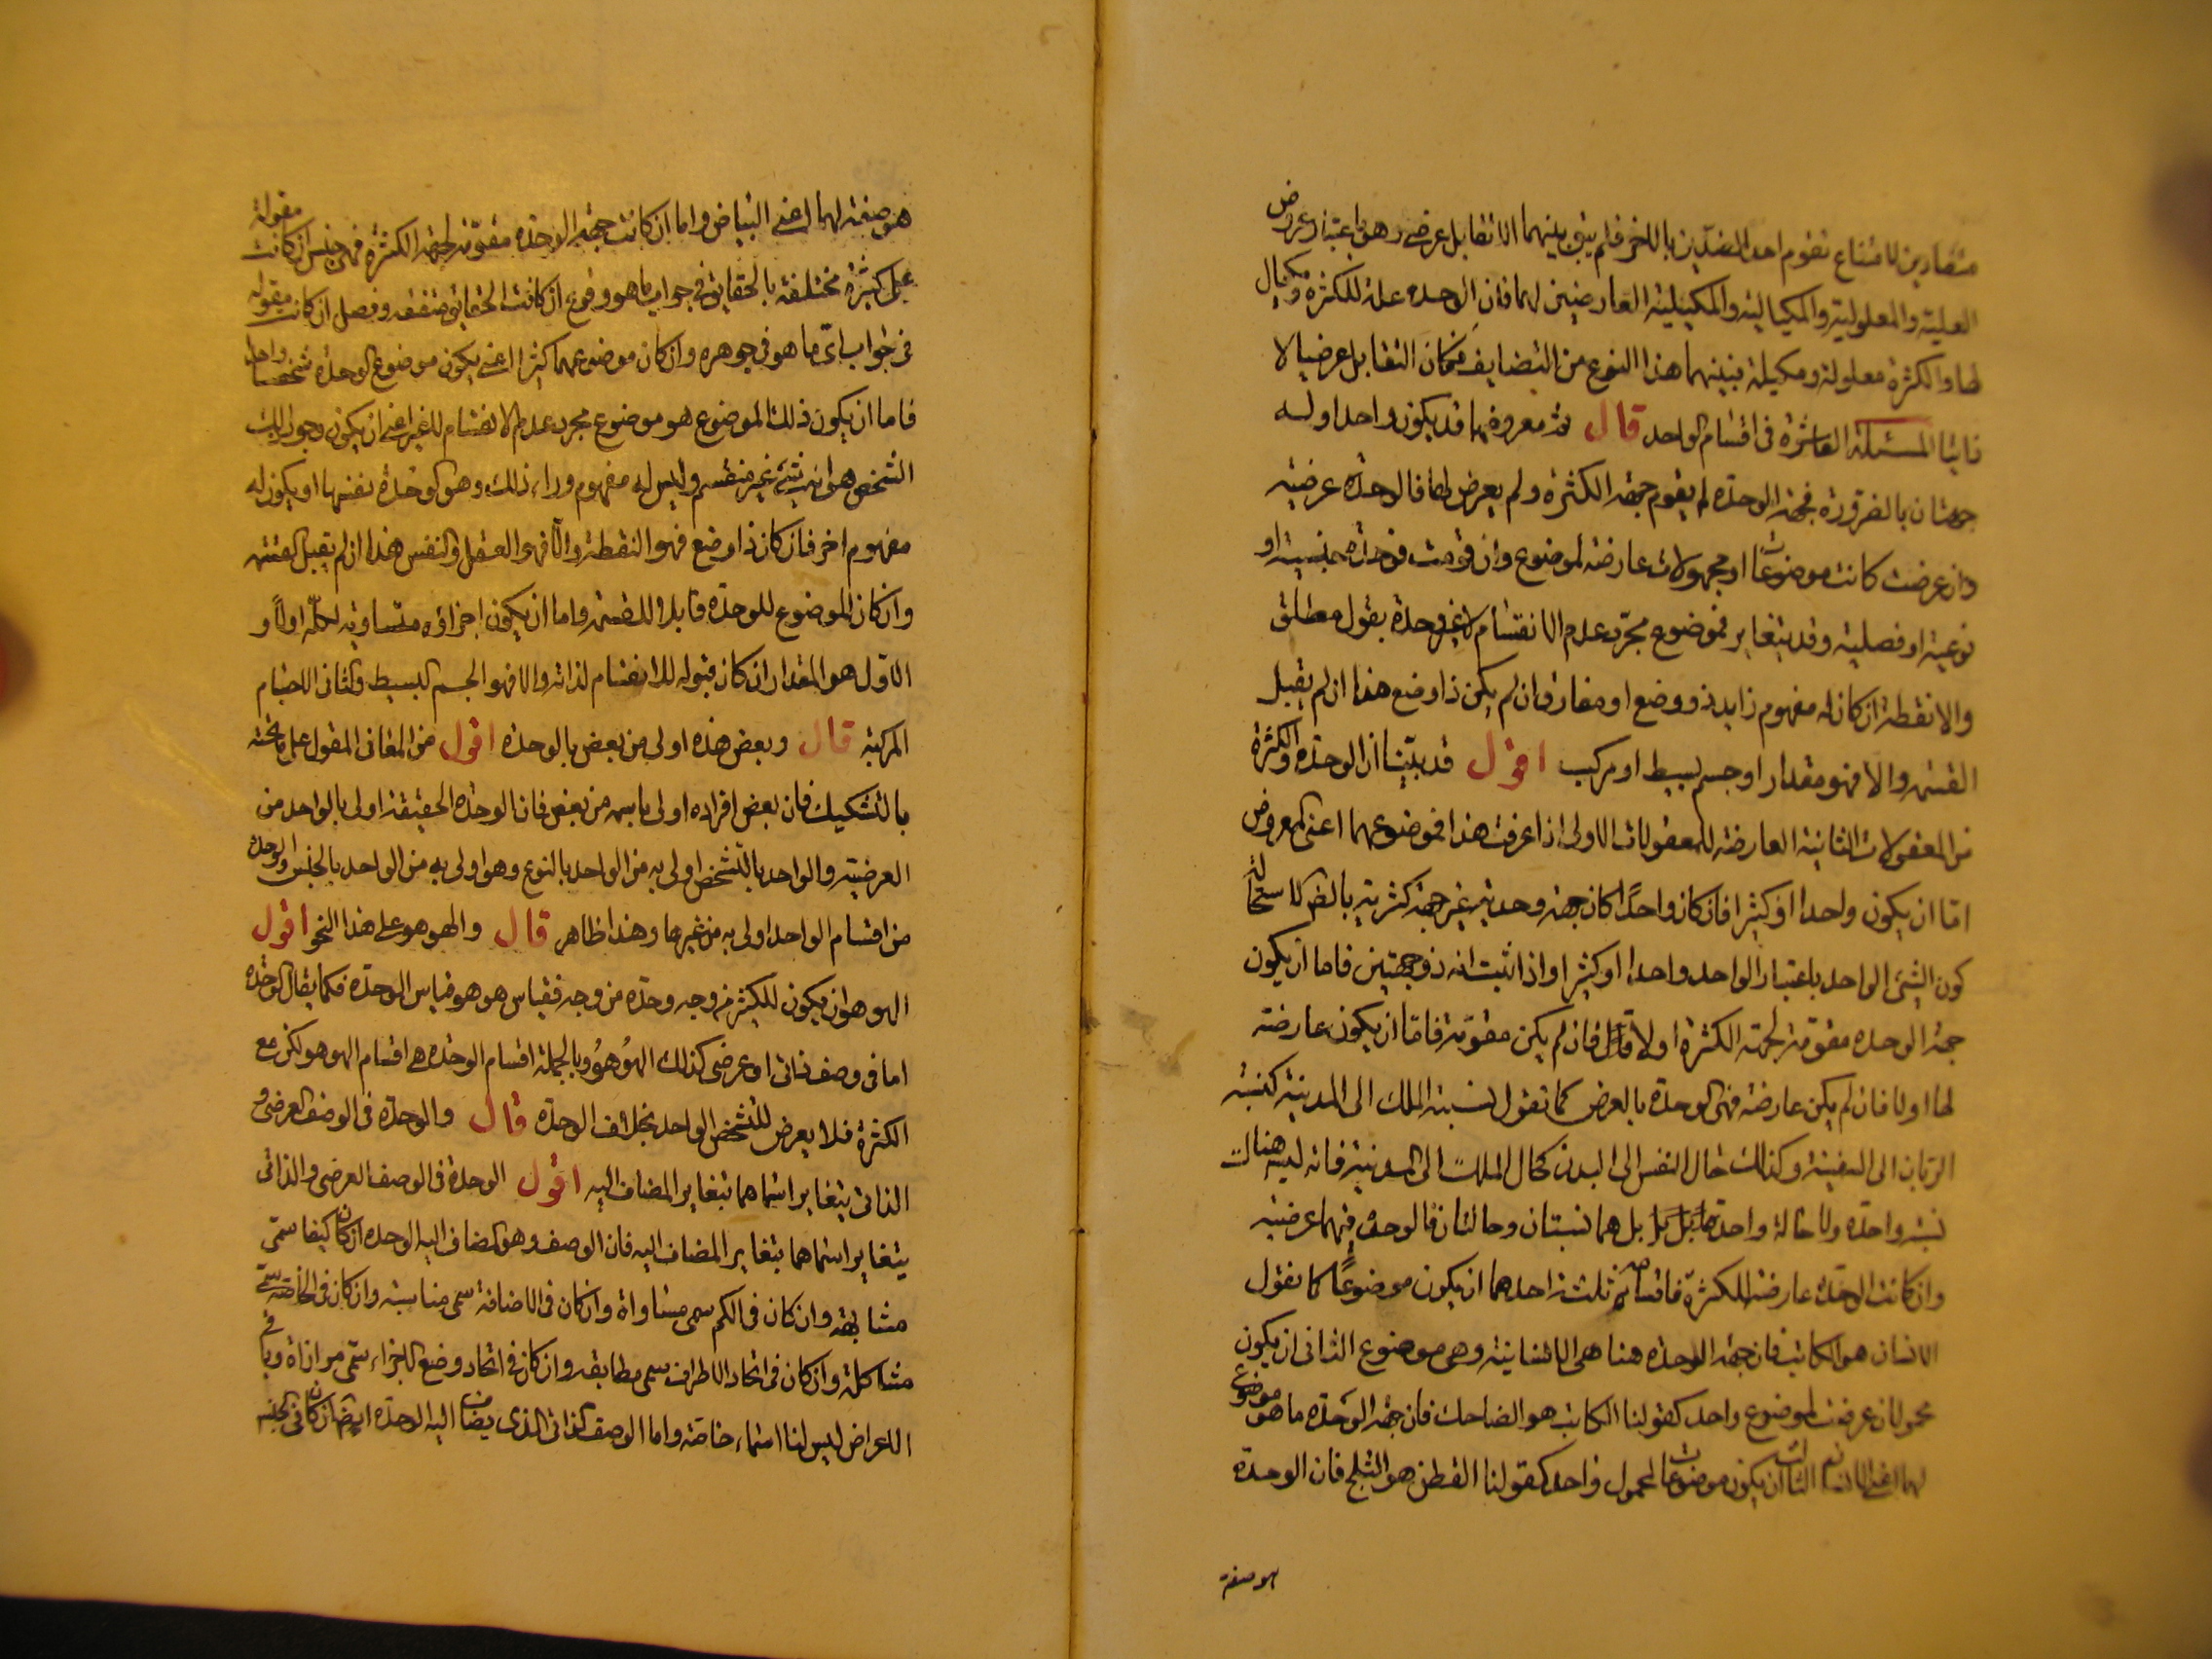 متضادين لامتناع تقوم احد الضدين بالاخر فلم يبق بينهما الا تقابل عرضى وهو باعتبار عروض
العلية والمعلولية والمكيالية والمكيلية العارضين لهما فان الوحدة علة للكثرة ومكيال
لها والكثرة معلولة ومكيلة فبينهما هذا النوع من التضايف فكان التقابل عرضيا لا
ذاتيا المسئلة العاشرة فى اقسام الواحد قال ثم معروضهما قد يكون واحدا وله
جهتان بالضرورة فجهة الوحدة لم يقوم جهة الكثرة ولم يعرض لها فالوحدة عرضية
وان عرضت كانت موضوعات او محمولات عارضة لموضوع وان قومت فوحدة جنسية او
نوعية او فصلية وقد يتغاير فموضوع مجرد عدم الانقسام لا غير وحدة بقول مطلق
والا نقطة ان كان له مفهوم زايد ذو وضع او مفارق ان لم يكن ذا وضع هذا ان لم يقبل
القسمة والا فهو مقدار او جسم بسيط او مركب اقول قد بينا ان الوحدة والكثرة
من المعقولات الثانية العارضة للمعقولات الاولى اذا عرفت هذا فموضوعهما اعنى المعروض
اما ان يكون واحدا او كثيرا فان كان واحدا كان جهة وحدته غير جهة كثرته بالضرورة لاستحالة
كون الشئ الواحد باعتبار الواحد واحدا او كثيرا واذا ثبت انه ذو جهتين فاما ان يكون
جهة الوحدة مقومة لجهة الكثرة اولا فان لم يكن مقومة فاما ان يكون عارضة
لها اولا فان لم يكن عارضة فهى الوحدة بالعرض كما تقول نسبة الملك الى المدينة كنسبة
الربان الى السفينة وكذلك حال النفس الى البدن كحال الملك الى المدينة فانه ليس هناك
نسبة واحدة ولا حالة واحدة بل هما نسبتان وحالتان فالوحدة فيهما عرضية
وان كانت الوحدة عارضة للكثرة فاقسامه ثلثة احدهما ان يكون موضوعا كما تقول
الانسان هو الكاتب فان جهة الوحدة هنا هى الانسانية وهى موضوع الثانى ان يكون
محمولان عرضت لموضوع واحد كقولنا الكاتب هو الضاحك فان جهة الوحدة ما هو موضوع
لهما اعنى الانسان الثالث ان يكون موضوعات لمحمول واحد كقولنا القطن هو الثلج فان الوحدة
هو صفة
هو صفة لهما اعنى البياض واما ان كانت جهة الوحدة مقومة لجهة الكثرة فهى جنس ان كانت مقولة
على كثرة مختلفة بالحقايق فى جواب ما هو ونوع ان كانت الحقايق متفقة وفصل ان كانت مقولة
فى جواب اى ما هو فى جوهره وان كان موضوعهما كثيرا اعنى يكون موضوع الوحدة شخصا واحدا
فاما ان يكون ذلك الموضوع هو موضوع مجرد عدم الانقسام لا غير اعنى ان يكون وجود ذلك
الشخص هو انه شئ غير منقسم وليس له مفهوم وراء ذلك وهو كوحدة نفسها او يكون له
مفهوم اخر فان كان ذا وضع فهو النقطة والا فهو العقل والنفس هذا ان لم يقبل القسمة
وان كان الموضوع للوحدة قابلا للقسمة واما ان يكون اجزاؤه متساوية لكله اولا و
الاول هو المقدار ان كان قبوله للانقسام لذاته والا فهو الجسم البسيط والثانى الاجسام
المركبة قال وبعض هذه اولى من بعض بالوحدة اقول من المعانى المقول على ما تحته
بالتشكيك فان بعض افراده اولى باسمه من بعض فان الوحدة الحقيقة اولى بالواحد من
العرضية والواحد بالشخص اولى به من الواحد بالنوع وهو اولى به من الواحد بالجنس والوحدة
من اقسام الواحد اولى به من غيرها وهذا ظاهر قال والهوهو على هذا النحو اقول
الهوهو ان يكون للكثير من وجه وحدة من وجه فقياس هو هو قياس الوحدة فكما يقال الوحدة
اما فى وصف ذاتى او عرضى كذلك الهوهو وبالجملة اقسام الوحدة هى اقسام الهوهو لكن مع
الكثرة فلا يعرض للشخص الواحد بخلاف الوحدة قال والوحدة فى الوصف العرضى و
الذاتى يتغاير اسماهما بتغاير المضاف اليه اقول الوحدة فى الوصف العرضى والذاتى
يتغاير اسماهما بتغاير المضاف اليه فان الوصف وهو المضاف اليه الوحدة ان كان كيفا سمى
مشابهة وان كان فى الكم سمى مساواة وان كان فى الاضافة سمى مناسبة وان كان فى الخاصة سمى
مشاكلة وان كان فى اتحاد الاطراف سمى مطابقة وان كان فى اتحاد وضع الاجزاء سمى موازاة وباقى
الاعراض ليس لها اسماء خاصة واما الوصف الذاتى الذى يضاف اليه الوحدة ايضا ان كان فى الجنس